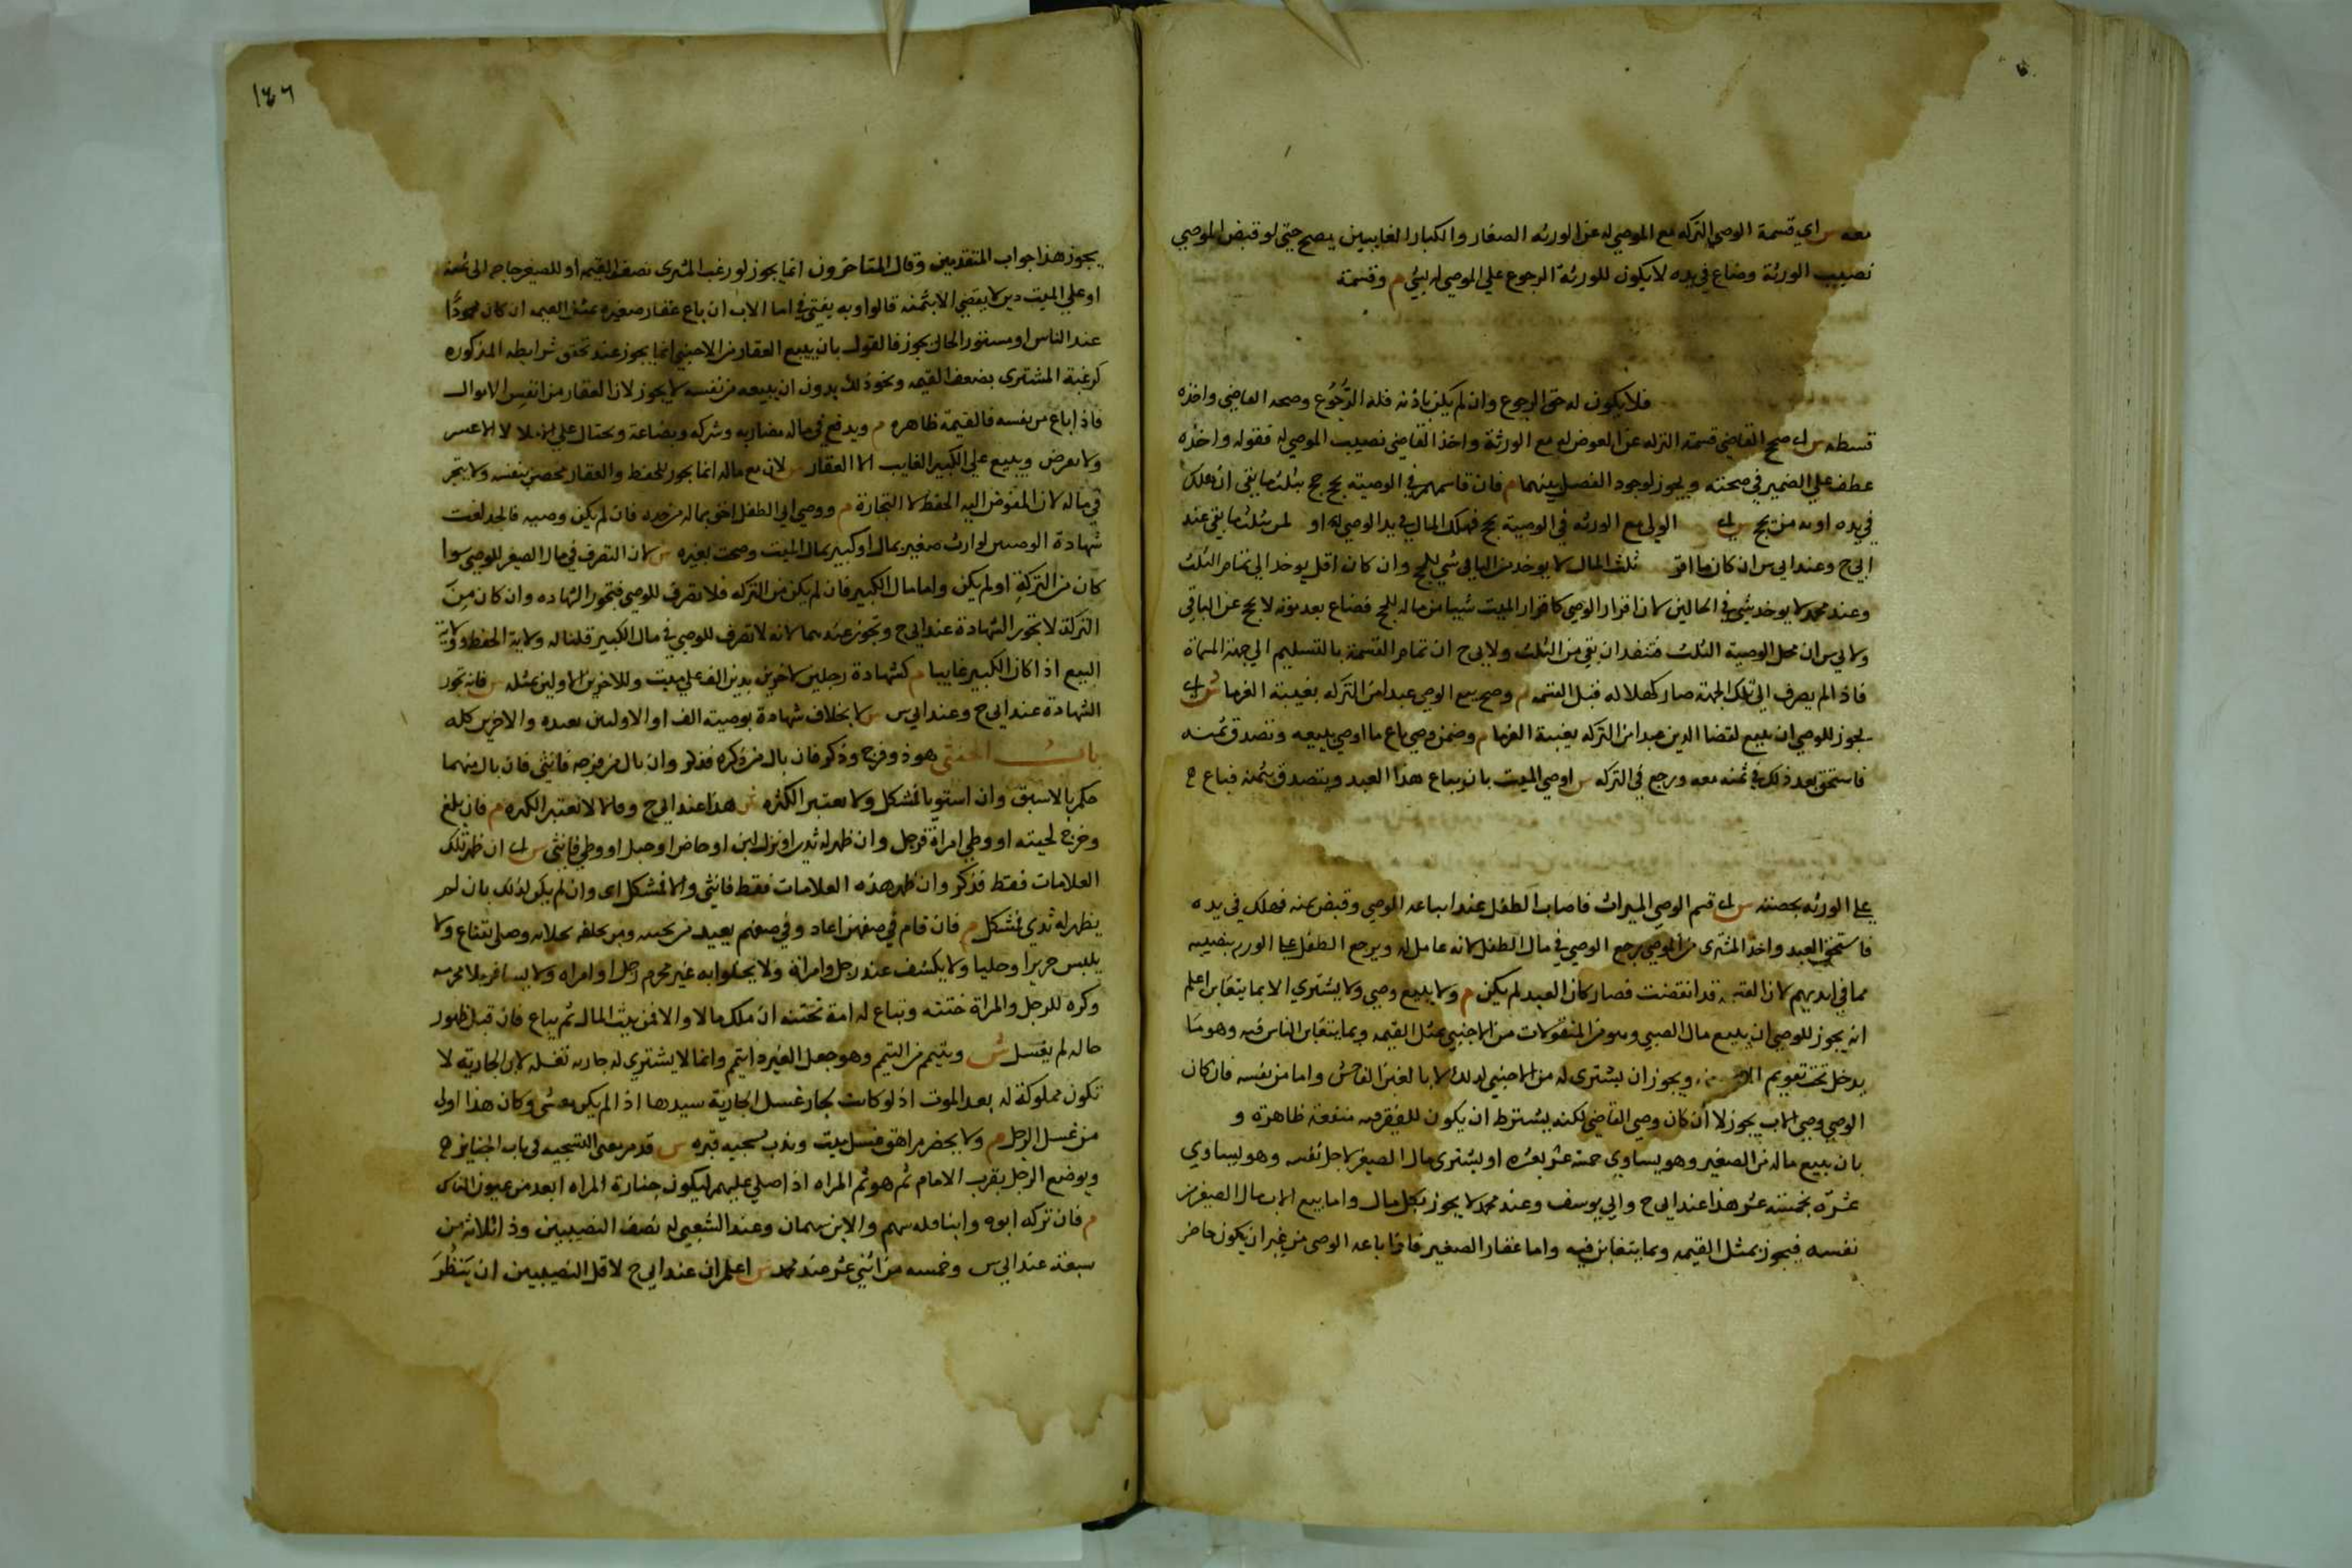 معه س اي قسمة الوصي التركه مع الموصي له عن الورثه الصغار والكبار الغايبين يصح حتي لو قبض الموصي
نصيب الورثة وضاع في يده لا يكون للورثة الرجوع علي الموصي له بشي م وقسمة
فلا يكون له حق الرجوع وان لم يكن باذنه فله الرجوع وصحه القاضي واخذه
قسطه س اي صح القاضي قسمة التركه عن الموصي له مع الورثة واخذ القاضي نصيب الموصي له فقوله واخذه
عطف علي الضمير في صحته ويجوز لوجود الفصل بينهما م فان قاسمهم في الوصية بحج حج بثلث ما بقي ان هلك
في يده او يد من يحج س اي الولي مع الورثه في الوصية بحج فهلك المال في يد الوصي او بثلث ما بقي عند
ابي ح وعند ابي س ان كان ما اقر ثلث المال لا يوخذ من الباقي شي للحج وان كان اقل يوخذ الي تمام الثلث
وعند محمد لا يوخذ شي في الحالين لان اقرار الوصي كاقرار الميت شيا من ماله للحج فضاع بعد موته لا يحج عن الباقي
ولابي س ان محل الوصية الثلث فتنفذ ان بقي من الثلث ولابي ح ان تمام القسمة بالتسليم الي جهة المسماة
فاذا لم يصرف الي تلك الجهة صار كهلاكه قبل القسمه م وصح بيع الوصي عبدا من التركه بغيبة الغرما س اي
يجوز للوصي ان يبيع لقضا الدين عبدا من التركه بغيبة الغرما م وضمن وصي باع ما اوصي ببيعه وتصدق ثمنه
فاستحق بعد ذلك في ثمنه معه ورجع في التركه س اوصي الميت بان يباع هذا العبد ويتصدق بثمنه فباع
علي الورثه بحصته س اي قسم الوصي الميراث فاصاب الطفل عبدا باعه الموصي وقبض ثمنه فهلك في يده
فاستحق العبد واخذ المشتري من الموصي يرجع الوصي في مال الطفل لانه عامل له ويرجع الطفل علي الورثه بنصيبه
مما في ايديهم لان القسمة قد انتقضت فصار كان العبد لم يكن م ولا يبيع وصي ولا يشتري الا بما يتغابن اعلم
انه يجوز للوصي ان يبيع مال الصبي وهو من المنقولات من الاجنبي بمثل القيمه وبما يتغابن الناس فيه وهو ما
يدخل تحت تقويم ويجوز ان يشتري له من الاجنبي كذلك لا بالغبن الفاحش واما من نفسه فان كان
الوصي وصي الاب يجوز لا ان كان وصي القاضي لكنه يشترط ان يكون للصغير فيه منفعة ظاهرة و
بان يبيع ماله من الصغير وهو يساوي خمسة عشر بعشره او يشتري مال الصغير لاجل نفسه وهو يساوي
عشرة بخمسة عشر هذا عند ابي ح وابي يوسف وعند محمد لا يجوز بكل مال واما بيع الاب مال الصغير من
نفسه فيجوز بمثل القيمه وبما يتغابن فيه واما عقار الصغير فاذا باعه الوصي من غير ان يكون حاضر
١٤٦
يجوز هذا جواب المتقدمين وقال المتاخرون انما يجوز لو رغب المشتري بضعف القيمه او للصغير حاجه الي ثمنه
او علي الميت دين لا يقضي الا بثمنه قالوا وبه يفتي في اما الاب ان باع عقار صغيره بمثل القيمه ان كان محمودا
عند الناس او مستور الحال يجوز فالقول بان بيع العقار من الاجنبي انما يجوز عند تحقق شرايطه المذكوره
كرغبة المشتري بضعف القيمه ونحو ذلك بدون ان يبيعه من نفسه لا يجوز لان العقار من انفس الاموال
فاذا باع من نفسه فالقيمة ظاهره م ويدفع في ماله مضاربه وشركه وبضاعة ويحتال علي الاملا لا الاعسر
ولا يقرض ويبيع علي الكبير الغايب الا العقار س لان بيع ماله انما يجوز للحفظ والعقار محصن بنفسه ولا يتجر
في ماله لان المفوض اليه الحفظ لا التجارة م ووصي ابي الطفل احق بماله من جده فان لم يكن وصيه فالجد لغت
شهادة الوصيين لوارث صغير بمال او كبير بمال الميت وصحت بغيره س لان التصرف في مال الصغير للوصي سوا
كان من التركة او لم يكن واما مال الكبير فان لم يكن من التركه فلا تصرف للوصي فتجوز الشهاده وان كان من
التركة لا تجوز الشهادة عند ابي ح وتجوز عندهما لانه لا تصرف للوصي في مال الكبير قلنا له ولاية الحفظ وولاية
البيع اذا كان الكبير غايبا م كشهادة رجلين لاخرين بدين الف علي ميت وللاخرين الاولين بمثله س فانه تجوز
الشهادة عند ابي ح وعند ابي س س لا بخلاف شهادة بوصيته الف او الاولين بعبده والاخرين بثلثه
باب الخنثي هو ذو فرج وذكر فان بال من ذكره فذكر وان بال من فرجه فانثي فان بال منهما
حكم بالاسبق وان استويا فمشكل ولا يعتبر الكثره س هذا عند ابي ح وقالا تعتبر الكثره م فان بلغ
وخرج لحيته او وطي امراة فرجل وان ظهر له ثدي او نزل لبن او حاض او حبل او وطي فانثي س اي ان ظهر تلك
العلامات فقط فذكر وان ظهر هذه العلامات فقط فانثي والا فمشكل اي وان لم يكن كذلك بان لم
يظهر له ثدي فمشكل م فان قام في صفهن اعاد وفي صفهم يعيد من بجنبيه ومن خلفه بحذايه وصلي بقناع ولا
يلبس حريرا وحليا ولا يكشف عند رجل وامراة ولا يخلوا به غير محرم رجل او امراه ولا يسافر بلا محرم
وكره للرجل والمراة ختنه وتباع له امة تختنه ان ملك مالا والا فمن بيت المال ثم يباع فان قبل ظهور
حاله لم يغسل س وييمم من التيمم وهو جعل الغير ذا تيمم وانما لا يشتري له جاريه تغسله لان الجارية لا
تكون مملوكة له بعد الموت اذ لو كانت لجاز غسل الجارية سيدها اذا لم يكن خنثي وكان هذا اولي
من غسل الرجل م ولا يحضر مراهق غسل ميت وندب تسجيه قبره س قد مر معني التسجيه في باب الجنايز
ويوضع الرجل بقرب الامام ثم هو ثم المراه اذا صلي عليهم ليكون جنازة المراه ابعد من عيون الناس
م فان تركه ابوه وابنا فله سهم والابن سهمان وعند الشعبي له نصف النصيبين وذا ثلاثة من
سبعة عند ابي س وخمسه من اثني عشر عند محمد س اعلم ان عند ابي ح لاقل النصيبين ان ينظر